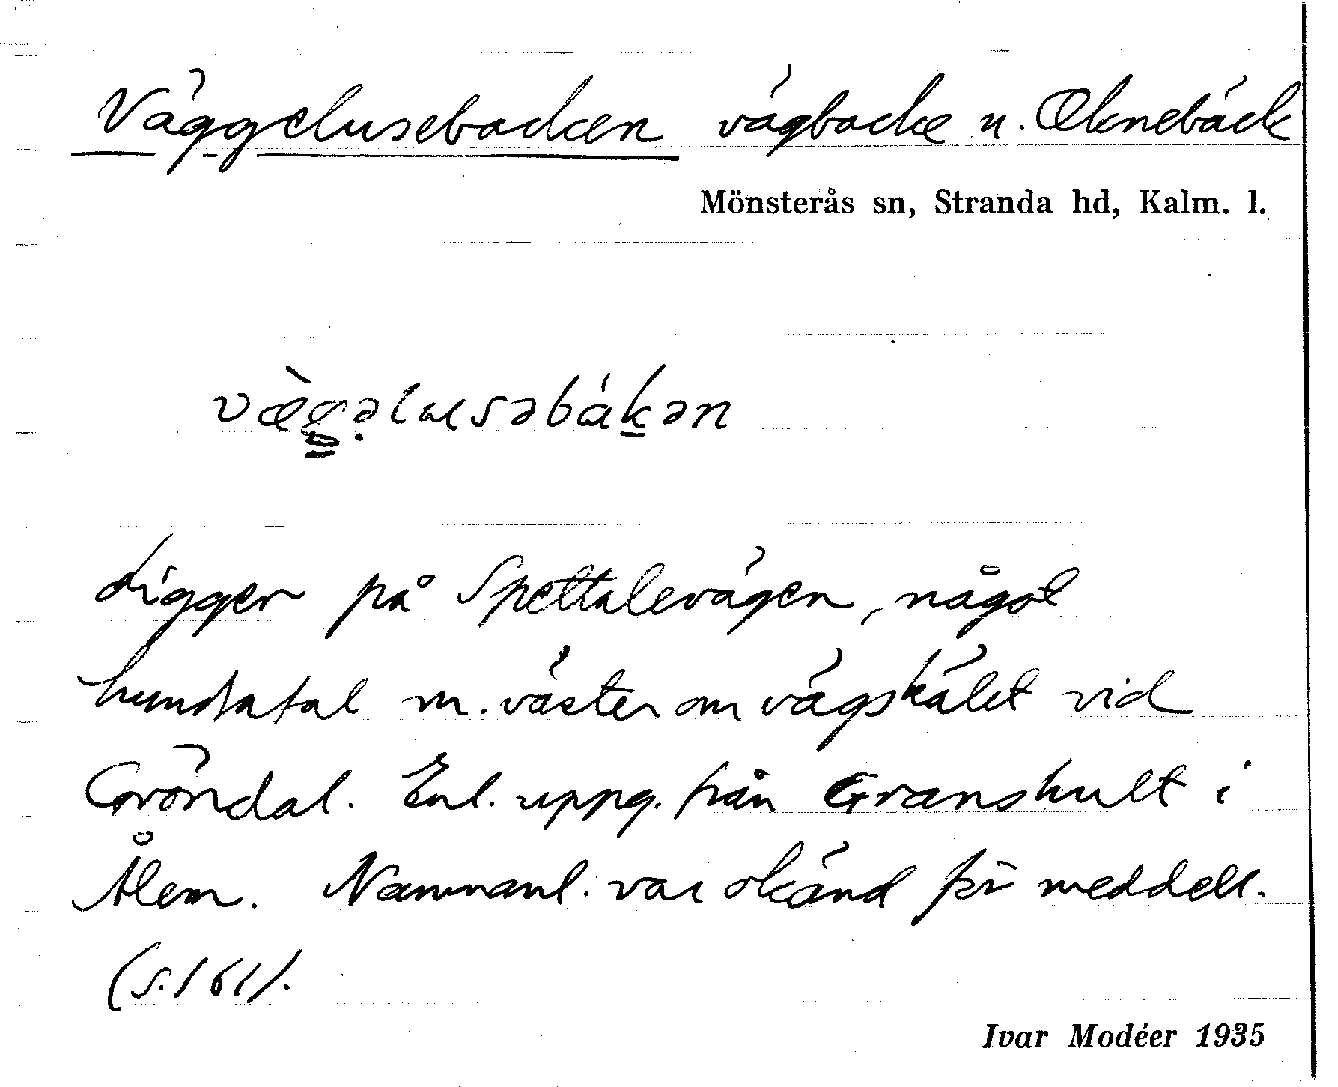 Väggelusebacken vägbacke u. Oknebäck
Mönsterås sn, Stranda hd, Kalm. l.
væ̀g̳ə̣lusəbák̠ən
Ligger på Spettalevägen, något
hundratal m. väster om vägskälet vid
Gröndal. Enl. uppg. från Granshult i
Ålem. Namnanl. var okänd för meddel.
(s. 161).
Ivar Modéer 1935